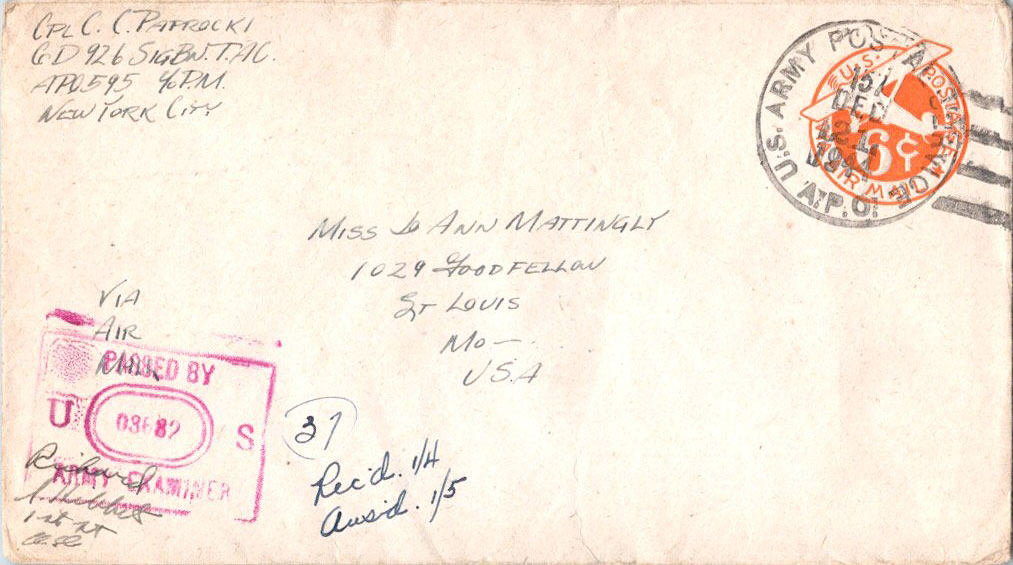 CPL C. C. PATROCKI
CO D 926 SIG BN. T.A.C.
APO 595 % P.M.
NEW YORK CITY
U.S. ARMY POSTAL SERVICE
A.P.O.
DEC
1944
U.S. POSTAGE
6¢
AIR MAIL
MISS JO ANN MATTINGLY
1029 GOODFELLOW
ST LOUIS
MO —
USA
VIA
AIR
MAIL
PASSED BY
U 03682 S
ARMY EXAMINER
Richard
1st Lt
37
Rec'd. 1/4
Answd. 1/5